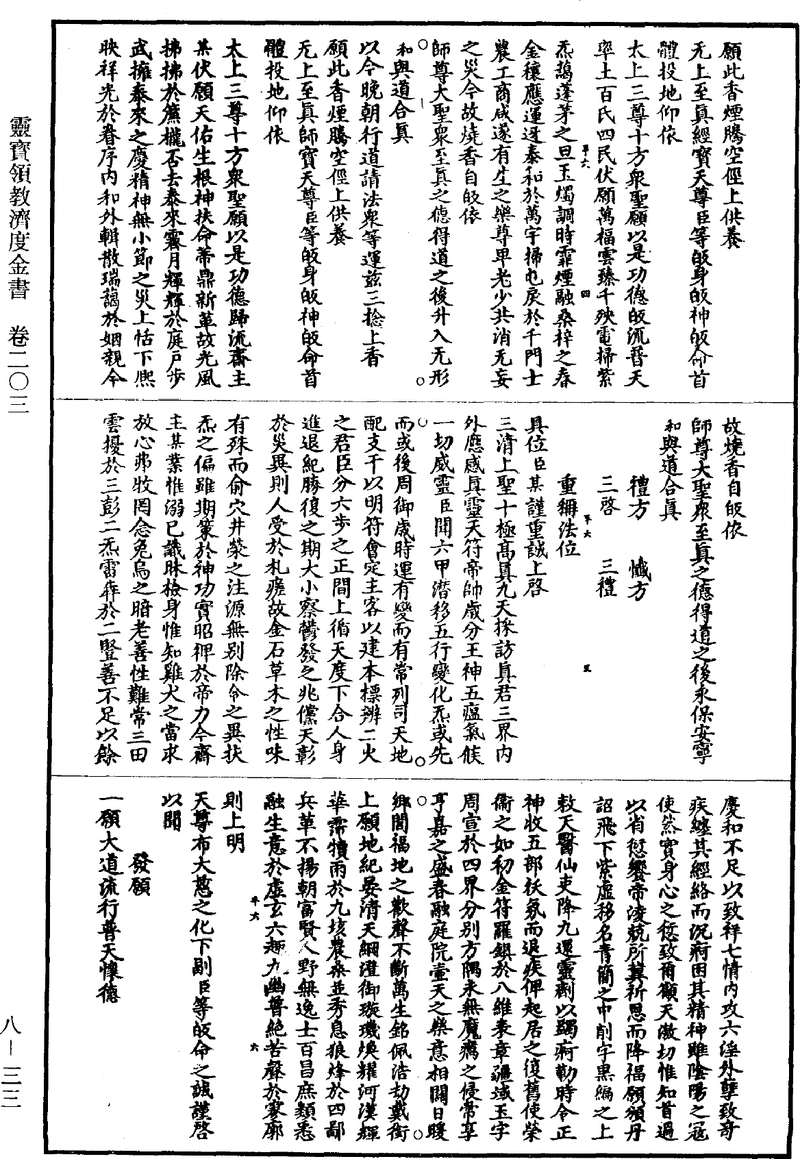 靈寶領教濟度金書 卷二〇三
願此香煙騰空徑上供養
无上至真經寶天尊臣等皈身皈神皈命首
體投地仰依
太上三尊十方衆聖願以是功德皈流普天
率土百氏四民伏願萬福雲臻千殃電掃紫
炁藹蓬茅之旦玉燭調時霏煙融桑梓之春
金穰應運迓泰和於萬宇掃屯戾於千門士
農工商咸遂有生之樂尊卑老少共消无妄
之災今故燒香自皈依
師尊大聖衆至真之德得道之後升入无形
和與道合真
以今晚朝行道請法衆等運兹三捻上香
願此香煙騰空徑上供養
无上至真師寶天尊臣等皈身皈神皈命首
體投地仰依
太上三尊十方衆聖願以是功德歸流齋主
某伏願天佑生根神扶命蒂鼎新革故光風
拂拂於簾櫳否去泰來霽月輝輝於庭戶步
武擁泰來之慶精神無小節之災上恬下熙
映祥光於眷序內和外輯散瑞藹於姻親今
故燒香自皈依
師尊大聖衆至真之德得道之後永保安寧
和與道合真
禮方 懺方
三啓 三禮
重稱法位
具位臣某謹重誠上啓
三清上聖十極高真九天採訪真君三界內
外應感真靈天符帝帥歲分王神五瘟氣候
一切威靈臣聞六甲潛移五行變化炁或先
而或後周御歲時運有變而有常列司天地
配支干以明符會定主客以建本標辨二火
之君臣分六步之正間上循天度下合人身
進退紀勝復之期大小察鬱發之兆儻天彰
於災異則人受於札瘥故金石草木之性味
有殊而俞穴井滎之注源無別除令之異扶
炁之偏雖期篆於神功實昭稗於帝力今齋
主某業惟溺己識昧檢身惟知雞犬之當求
放心弗牧罔念兔烏之暗老善性難常三田
雲擾於三彭二炁雷舂於二豎善不足以餘
慶和不足以致祥七情內攻六淫外孽致奇
疾纏其經絡而沉痾困其精神雖陰陽之寇
使然實身心之愆致爾籲天激切惟知首過
以省愆饗帝凌兢所冀祈恩而降福願頒丹
詔飛下紫虛移名青簡之中削字黑編之上
敕天醫仙吏降九還靈劑以蠲痾勒時令正
神收五部祅氛而退疾俾起居之復舊使榮
衞之如初金符羅鎮於八維表章疆域玉字
周宣於四界分別方隅永無魔癘之侵常享
亨嘉之盛春融庭院壺天之樂意相關日暖
鄉閭福地之歡聲不斷萬生銘佩浩劫戴銜
上願地紀晏清天綱澄御璇璣煥耀河漢輝
華霈犢雨於九垓農桑並秀息狼烽於四鄙
兵革不揚朝富賢人野無逸士百昌庶類悉
融生意於虛玄六趣九幽普絕苦聲於寥廓
則上明
天尊布大慈之化下副臣等皈命之誠謹啓
以聞
發願
一願大道流行普天懷德
八—三三